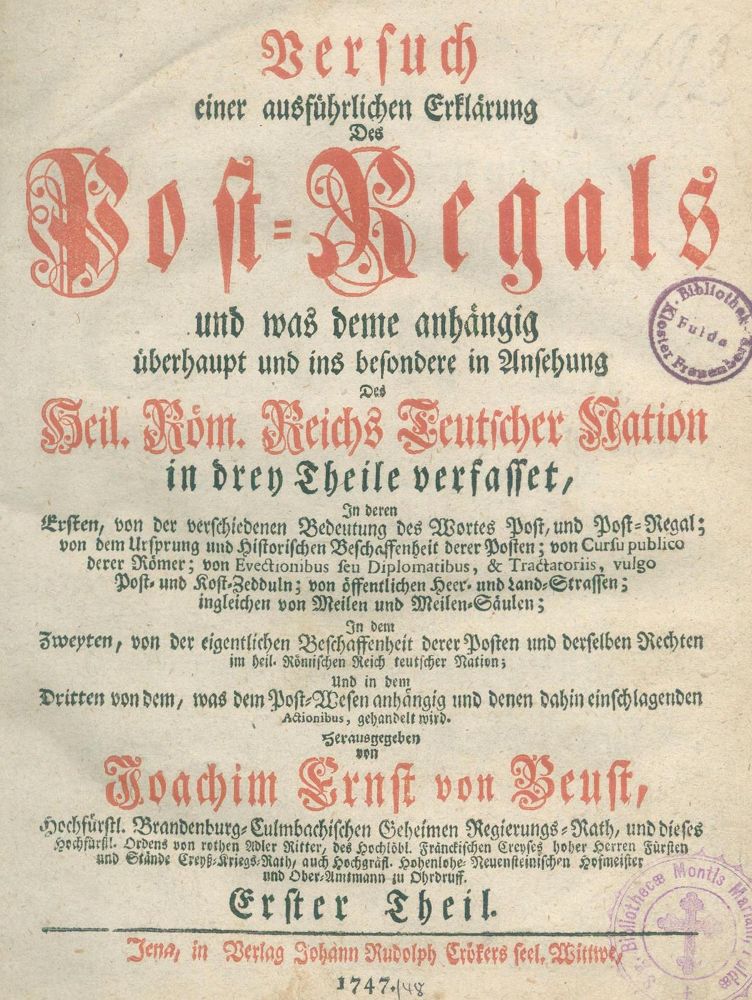 Versuch
einer ausführlichen Erklärung
Des
Post-Regals
und was deme anhängig
überhaupt und ins besondere in Ansehung
Des
Heil. Röm. Reichs Teutscher Nation
in drey Theile verfasset,
In deren
Ersten, von der verschiedenen Bedeutung des Wortes Post, und Post-Regal;
von dem Ursprung und Historischen Beschaffenheit derer Posten; von Cursu publico
derer Römer; von Evectionibus seu Diplomatibus, & Tractatoriis, vulgo
Post- und Kost-Zedduln; von öffentlichen Heer- und Land-Strassen;
ingleichen von Meilen und Meilen-Säulen;
In dem
Zweyten, von der eigentlichen Beschaffenheit derer Posten und derselben Rechten
im heil. Römischen Reich teutscher Nation;
Und in dem
Dritten von dem, was dem Post-Wesen anhängig und denen dahin einschlagenden
Actionibus, gehandelt wird.
Herausgegeben
von
Joachim Ernst von Beust,
Hochfürstl. Brandenburg-Culmbachischen Geheimen Regierungs-Rath, und dieses
Hochfürstl. Ordens von rothen Adler Ritter, des Hochlöbl. Fränckischen Creyses hoher Herren Fürsten
und Stände Creyß-Kriegs-Rath, auch Hochgräfl. Hohenlohe-Neuensteinischen Hofmeister
und Ober-Amtmann zu Ohrdruff.
Erster Theil.
Jena, in Verlag Johann Rudolph Crökers seel. Wittwe,
1747./48
Bibliothek
Kloster Frauenberg
Fulda
Bibliothecæ Montis Mariani